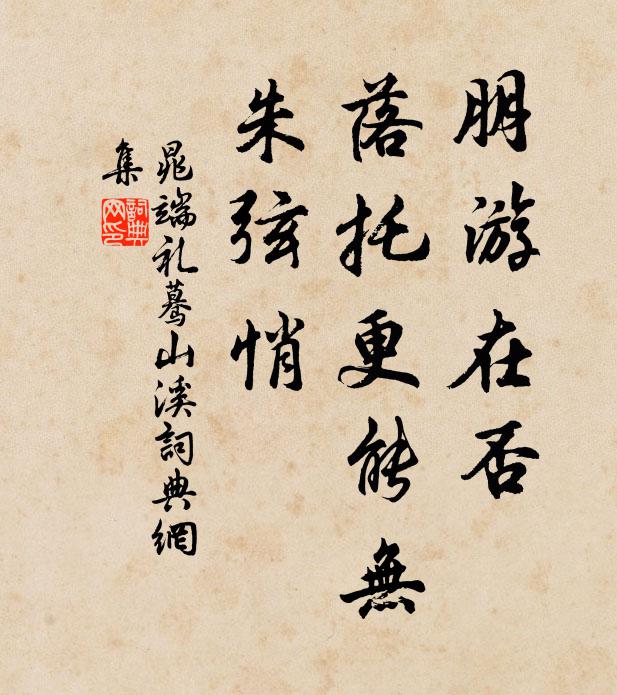 朋游在否
落托更能無
朱弦悄
晁端礼蓦山溪詞典網
集
詞典網印